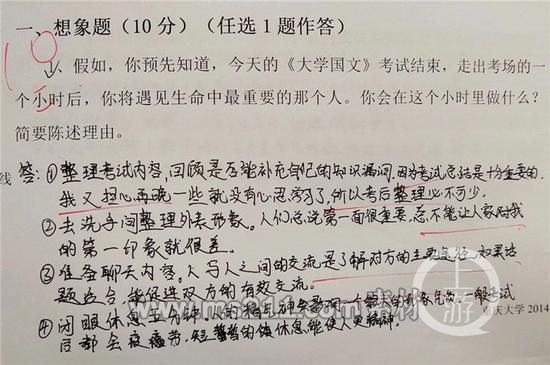 一、想象题（10 分）（任选 1 题作答）
10
1、假如，你预先知道，今天的《大学国文》考试结束，走出考场的一
个小时后，你将遇见生命中最重要的那个人。你会在这个小时里做什么？
简要陈述理由。
线 答：①整理考试内容，回顾是否能补充自己的知识漏洞，因为考试总结是十分重要的，
我又担心再晚一些就没有心思学习了，所以考后整理必不可少。
②去洗手间整理外表形象。人们总说第一面很重要，总不能让人家对我
的第一印象就很差。
③准备聊天内容，人与人之间的交流是了解对方的主要途径，如果话
题适合，能促进双方的有效交流。
④闭眼休息五分钟，人的精神
后都会疲惫劳，短暂的休息能使人更精神。
上游
重庆大学 2014